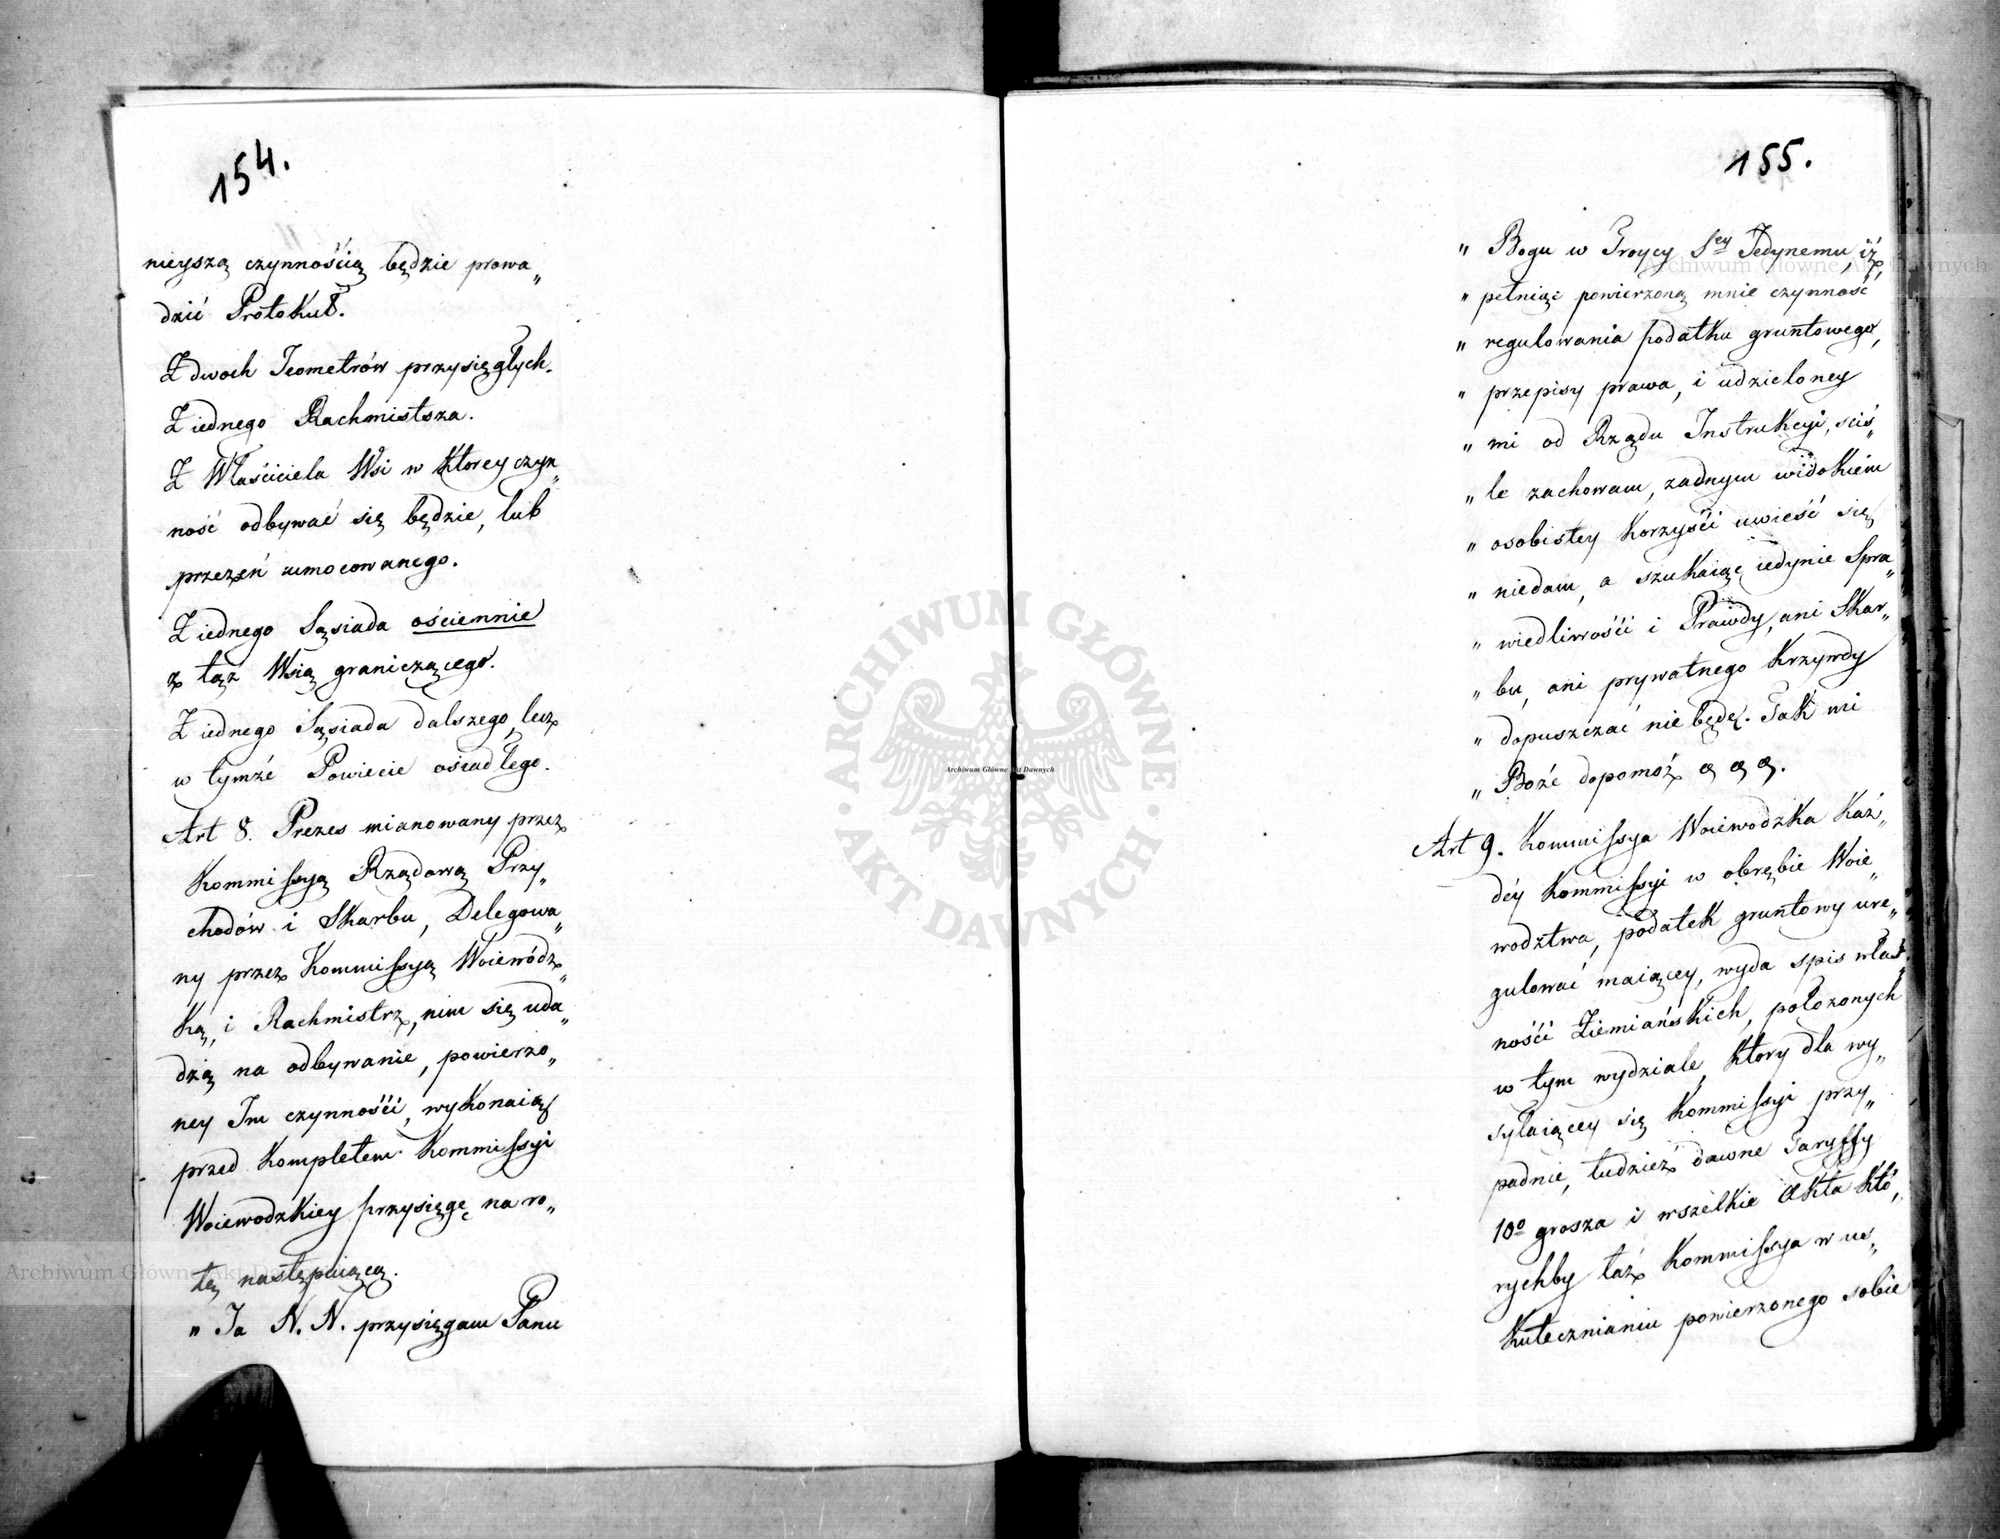 154.
nieyszą czynnością będzie prowa„
dzić Protokuł.
Z dwoch Jeometrów przysięgłych.
Z iednego Rachmistsza.
Z Właściciela Wsi w ktorey czyn„
ność odbywać się będzie, lub
przezeń umocowanego.
Z iednego Sąsiada ościennie
z tąż Wsią graniczącego.
Z iednego Sąsiada dalszego, lecz
w tymże Powiecie osiadłego.
Art 8. Prezes mianowany przez
Kommissyą Rządową Przy„
chodów i Skarbu, Delegowa„
ny przez Kommissyą Woiewódz„
Ką, i Rachmistrz, nim się uda„
dzą na odbywanie, powierzo„
ney Im czynności, wykonaią
przed Kompletem Kommissyi
Woiewodzkiey przysięgę na ro„
tę następuiącą.
„ Ja N. N. przysięgam Panu
155.
„ Bogu w Troycy S<sup>ey</sup> Jedynemu, iż,
„ pełniąc powierzoną mnie czynność
„ regulowania podatku gruntowego,
„ przepisy prawa, i udzieloney
„ mi od Rządu Instrukcyi, ściś„
„ le zachowam, żadnym widokiem
„ osobistey Korzyści uwieść się
„ niedam, a szukaiąc iedynie Spra„
„ wiedliwości i Prawdy, ani Skar„
„ bu, ani prywatnego Krzywdy
„ dopuszczać nie będę. Tak mi
„ Boże dopomóż
Art 9. Kommissya Woiewodzka Każ„
déy Kommissyi w obrębie Woie„
wodztwa, podatek gruntowy ure„
gulować maiącey, wyda spis włas„
ności Ziemiańskich, położonych
w tym wydziale, który dla wy„
syłaiącey się Kommissyi przy„
padnie, tudzież dawne Taryffy
10º grosza i wszelkie Akta Któ„
rychby taż Kommissya w us„
Kutecznianiu powierzonego sobie
ARCHIWUM GŁÓWNE
AKT DAWNYCH
Archiwum Główne Akt Dawnych
Archiwum Główne Akt Dawnych
Archiwum Główne Akt Dawnych